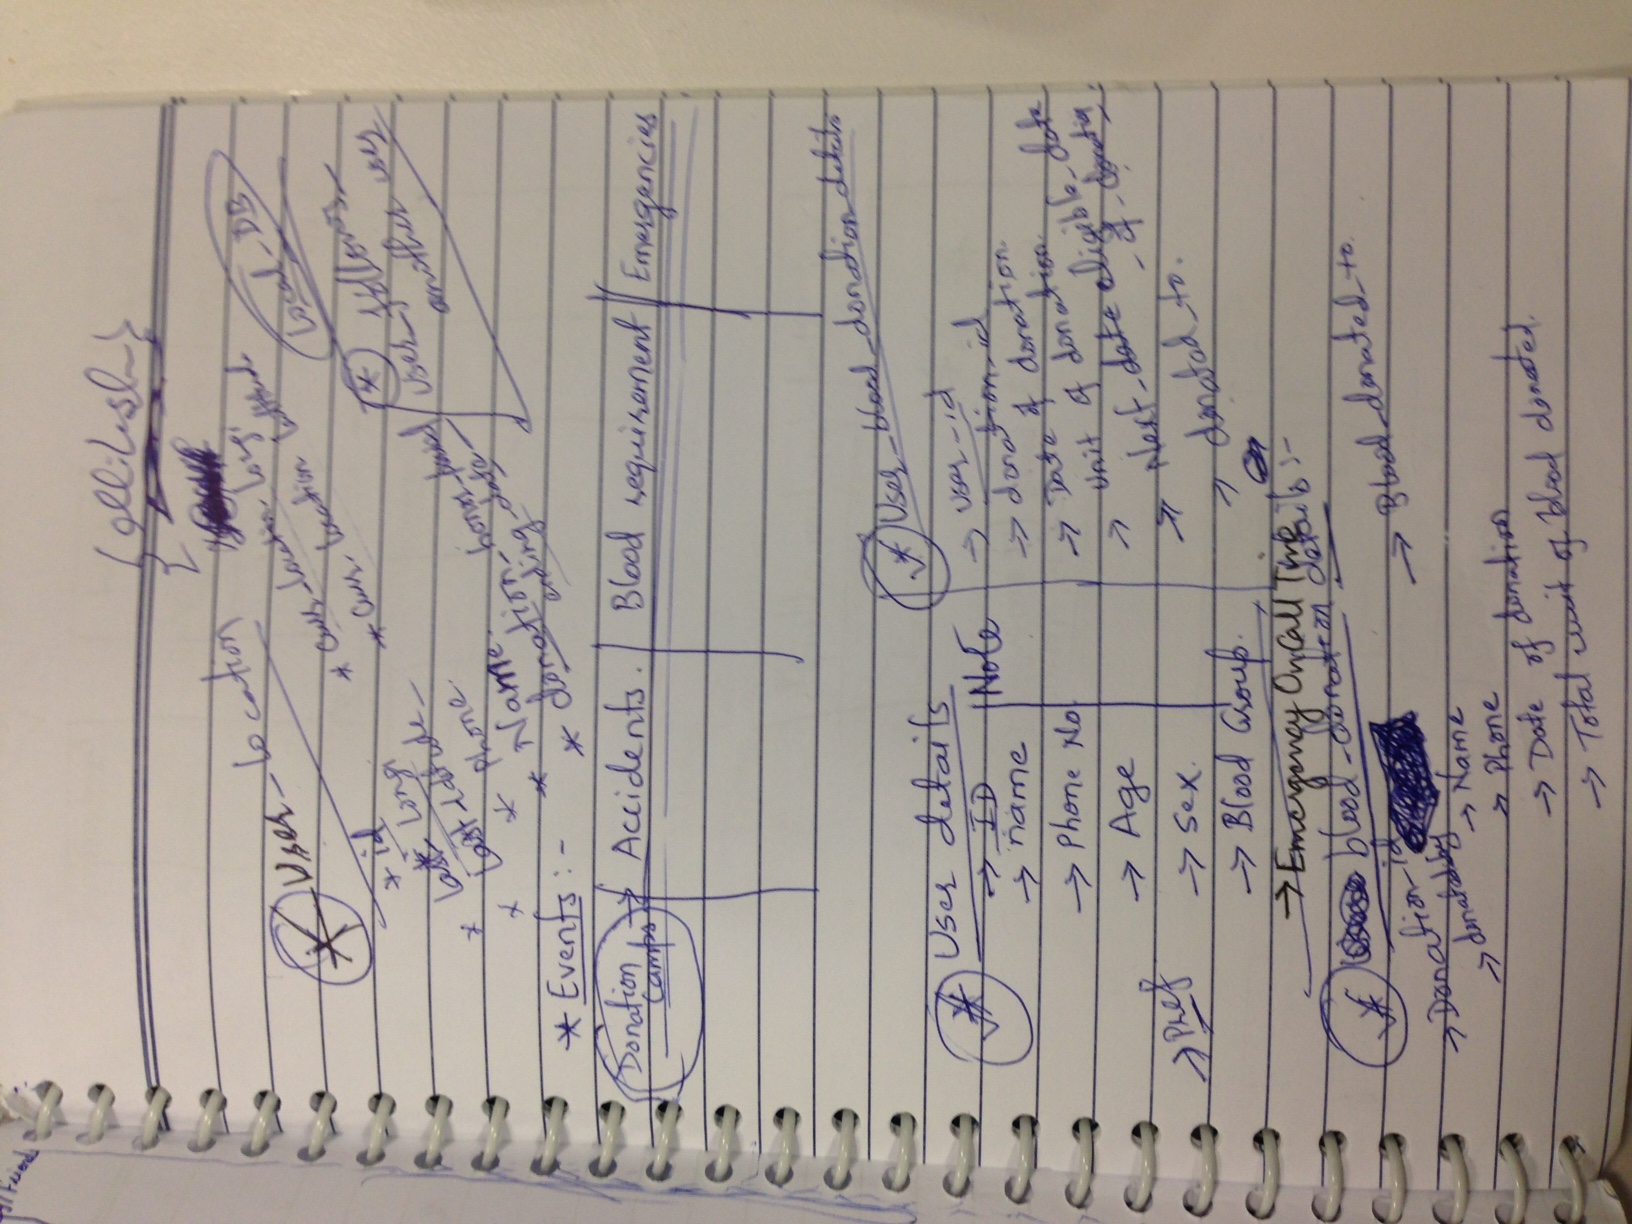 User_Location
* id
* last_longi
* last_latitude_
* Phone.
* Name.
* donation_honor_period
ending_date_
* curr_location_longi
* curr_location lattitude
Local_DB
* user_follows_
another user
* Events :-
Donation
Camps
Accidents.
Blood requirement
Emergencies
* User details
→ ID
Note
→ name
→ Phone No
→ Age
→ Pref
→ Sex.
→ Blood Group.
→ Emergency OnCall Time
* User_blood_donation_details
→ user_id
→ donation_id
→ Date of donation.
→ Unit of donation.
→ Next_date eligible_date
_of_donation.
→ donated_to.
* blood_donation details :-
→ Donation_id
→ donatedby
→ Name
→ Phone
→ Date of donation
→ Total unit of blood donated.
→ Blood_donated_to.